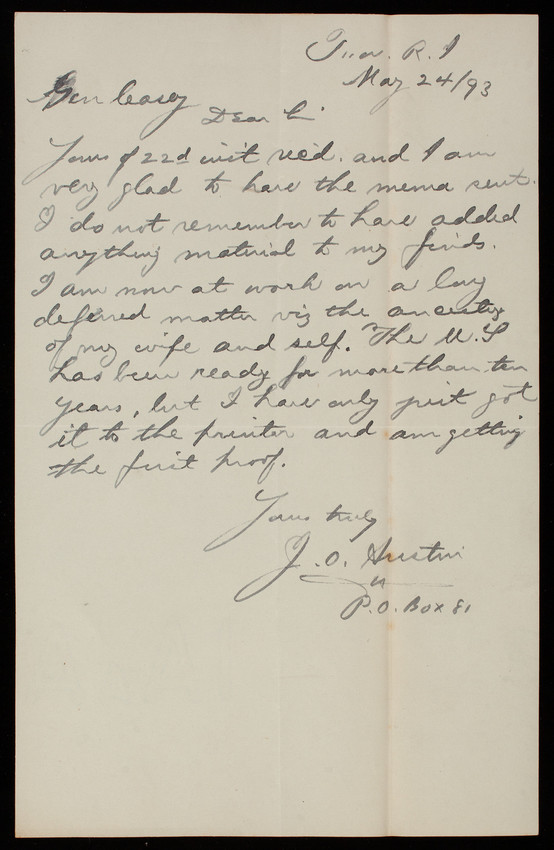 Prov. R. I
May 24/93
Gen Casey
Dear Sir
Yours of 22d inst rec'd. and I am
very glad to have the mema sent.
I do not remember to have added
anything material to my finds.
I am now at work on a long
deferred matter viz the ancestry
of my wife and self. The M.S
has been ready for more than ten
years, but I have only just got
it to the printer and am getting
the first proof.
Yours truly
J. O. Austin
P.O. Box 81